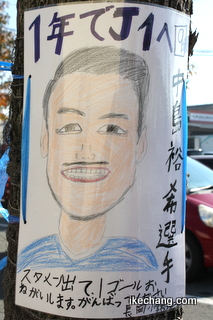 1年でJ1へ
9 中島裕希選手
スタメン出て、1ゴールお
ねがいします。がんばっ
ikechang.com